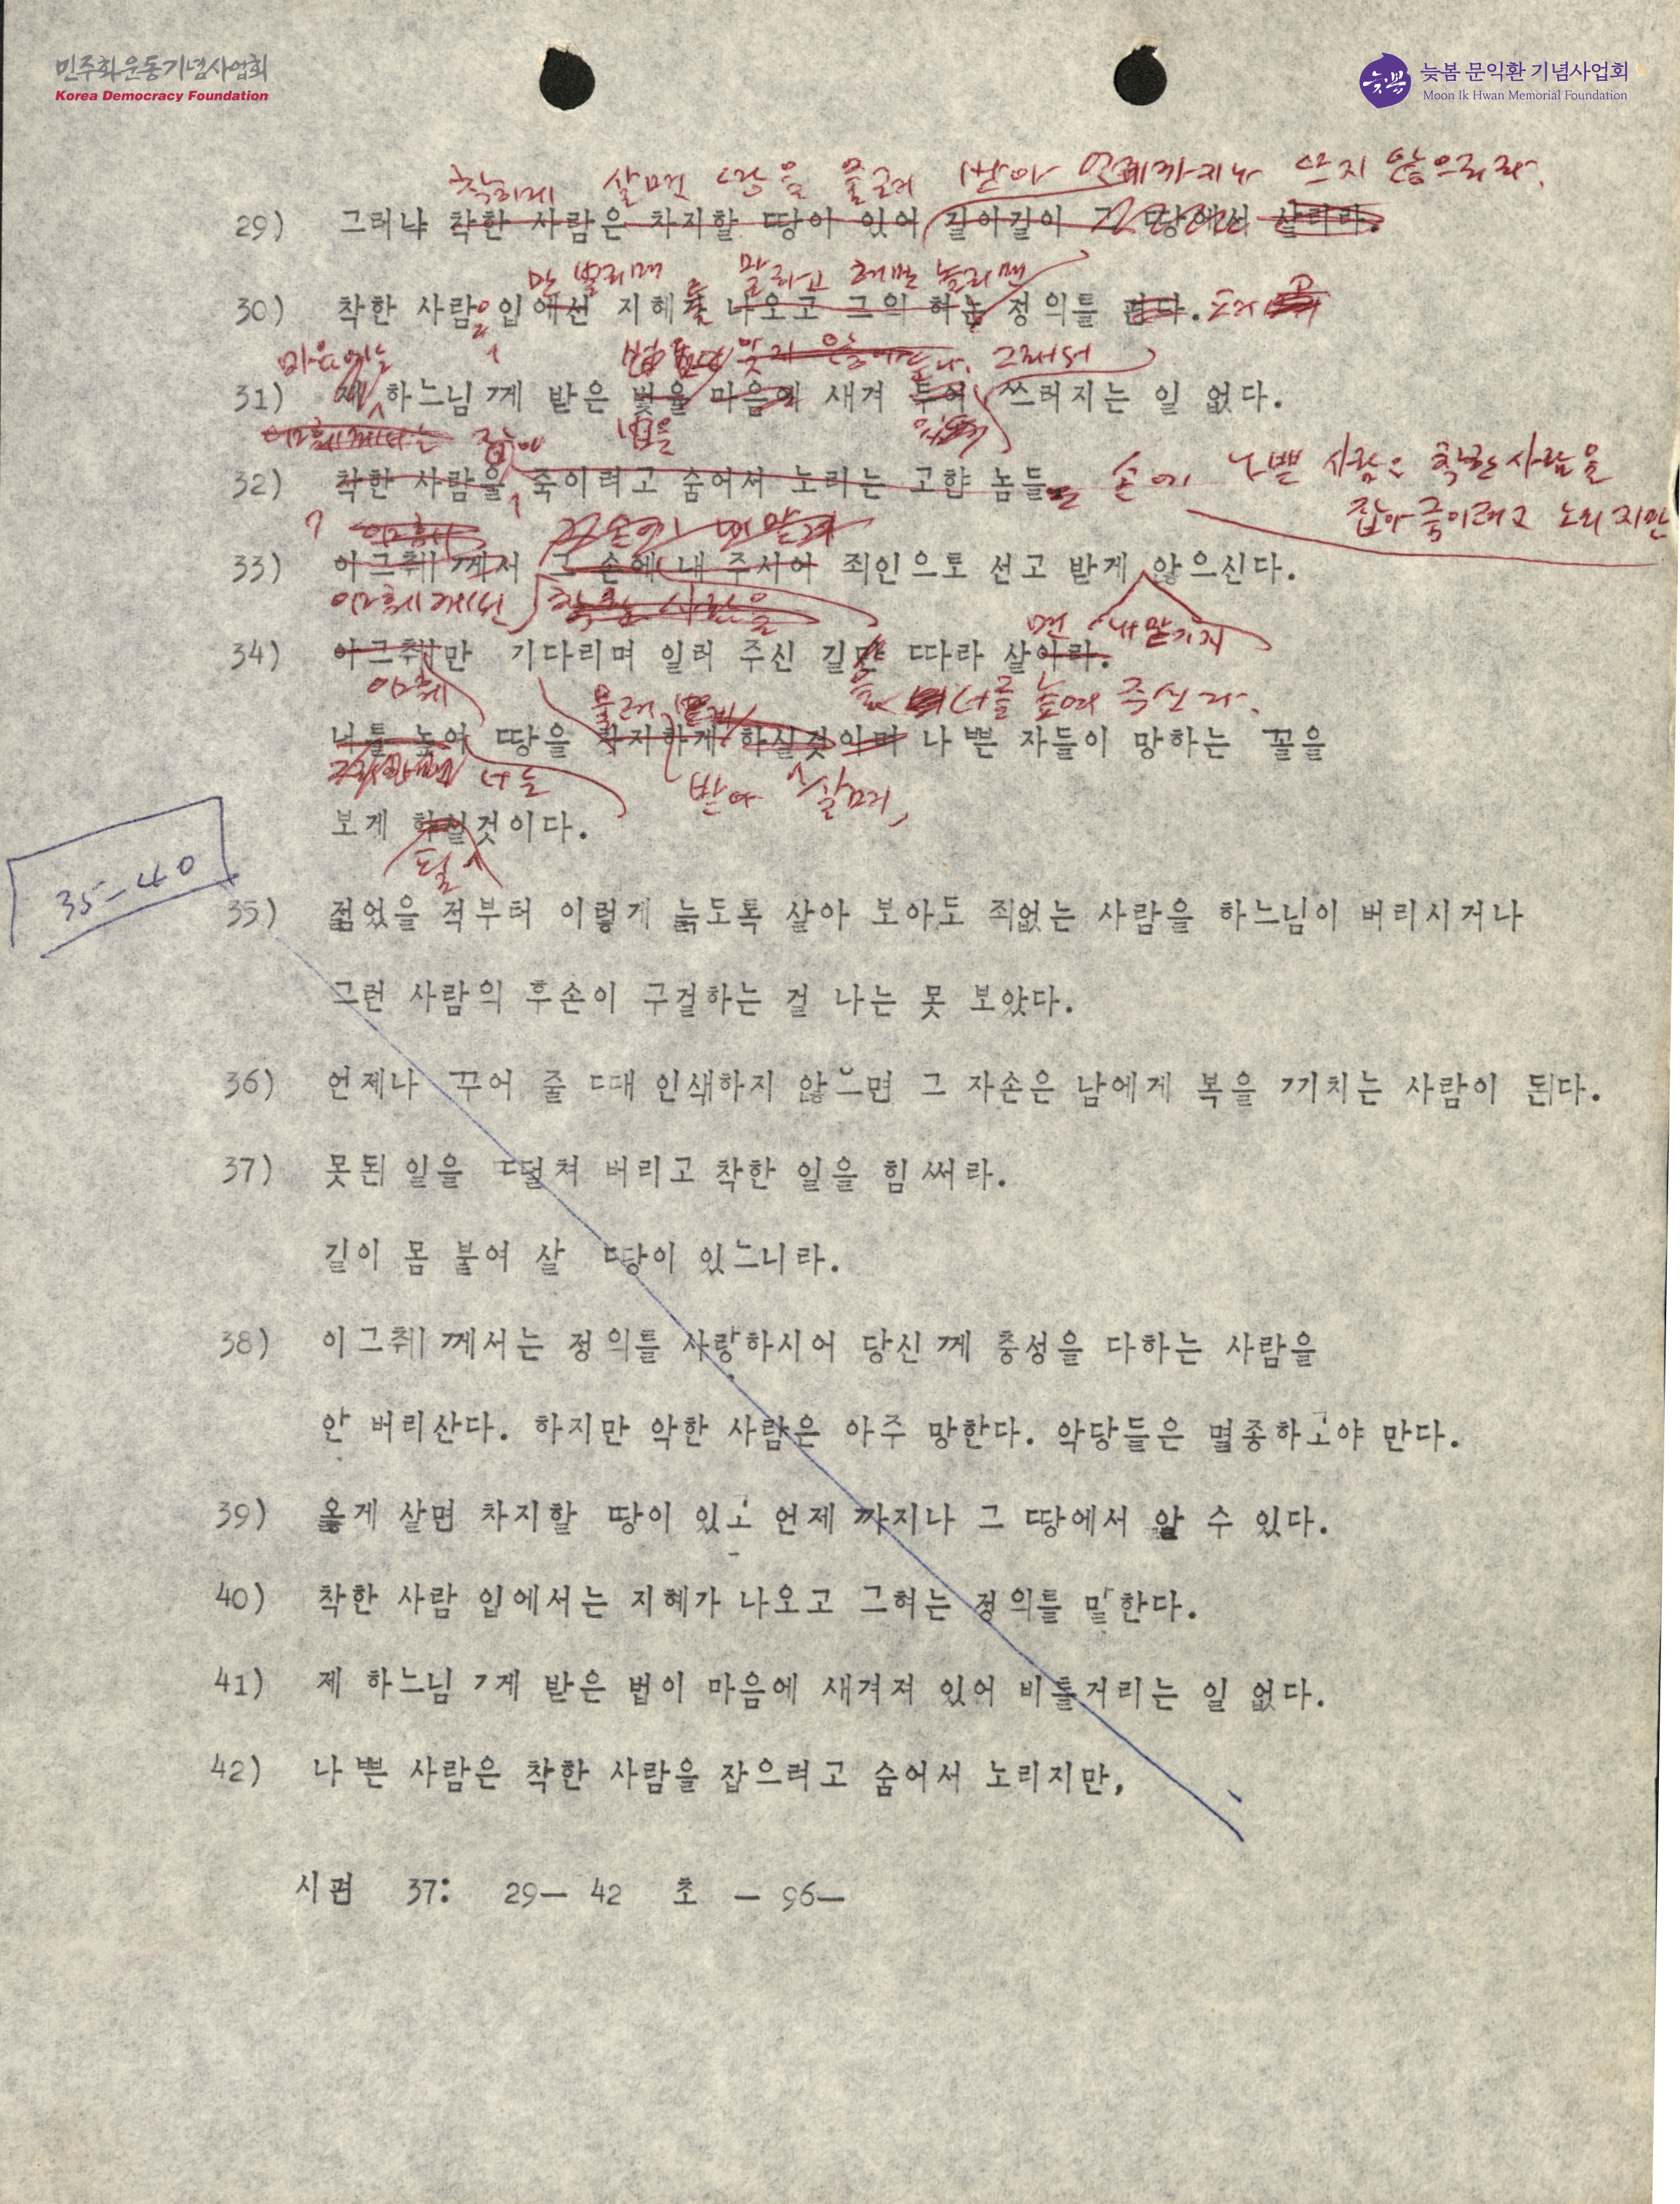 민주화운동기념사업회
Korea Democracy Foundation
늦봄 문익환 기념사업회
Moon Ik Hwan Memorial Foundation
착하게 살면 땅을 물려 받아 언제까지나 뜨지 않으리라.
29) 그러나 착한 사람은 차지할 땅이 있어 길이길이 그 땅에서 살리라.
만 벌리면 를 말하고 혀만 놀리면
30) 착한 사람 입에선 지혜가 나오고 그의 혀는 정의를 편다.
마음에는
그래서
31) 제 하느님께 받은 법을 마음에 새겨 두어 쓰러지는 일 없다.
법을
32) 착한 사람을 죽이려고 숨어서 노리는 고햔 놈들 손에 나쁜 사람은 착한 사람을
잡아 죽이려고 노리지만
33) 이그취께서 그 손에 내 주시어 죄인으로 선고 받게 않으신다.
야훼께선 착한 사람을
면 내맡기지
34) 야그취만 기다리며 일러 주신 길만 따라 살아라.
야훼 을 너를 높여 주신다.
물려
너를 높여 땅을 차지하게 하실것이며 나쁜 자들이 망하는 꼴을
너는 받아 살며,
보게 하실것이다.
될
35-40
35) 젊었을 적부터 이렇게 늙도록 살아 보아도 죄없는 사람을 하느님이 버리시거나
그런 사람의 후손이 구걸하는 걸 나는 못 보았다.
36) 언제나 꾸어 줄 때 인색하지 않으면 그 자손은 남에게 복을 끼치는 사람이 된다.
37) 못된 일을 떨쳐 버리고 착한 일을 힘써라.
길이 몸 붙여 살 땅이 있느니라.
38) 이그취께서는 정의를 사랑하시어 당신께 충성을 다하는 사람을
안 버리산다. 하지만 악한 사람은 아주 망한다. 악당들은 멸종하고야 만다.
39) 옳게 살면 차지할 땅이 있고 언제까지나 그 땅에서 살 수 있다.
40) 착한 사람 입에서는 지혜가 나오고 그혀는 정의를 말한다.
41) 제 하느님께 받은 법이 마음에 새겨져 있어 비틀거리는 일 없다.
42) 나쁜 사람은 착한 사람을 잡으려고 숨어서 노리지만,
시편 37: 29— 42 초 — 96—